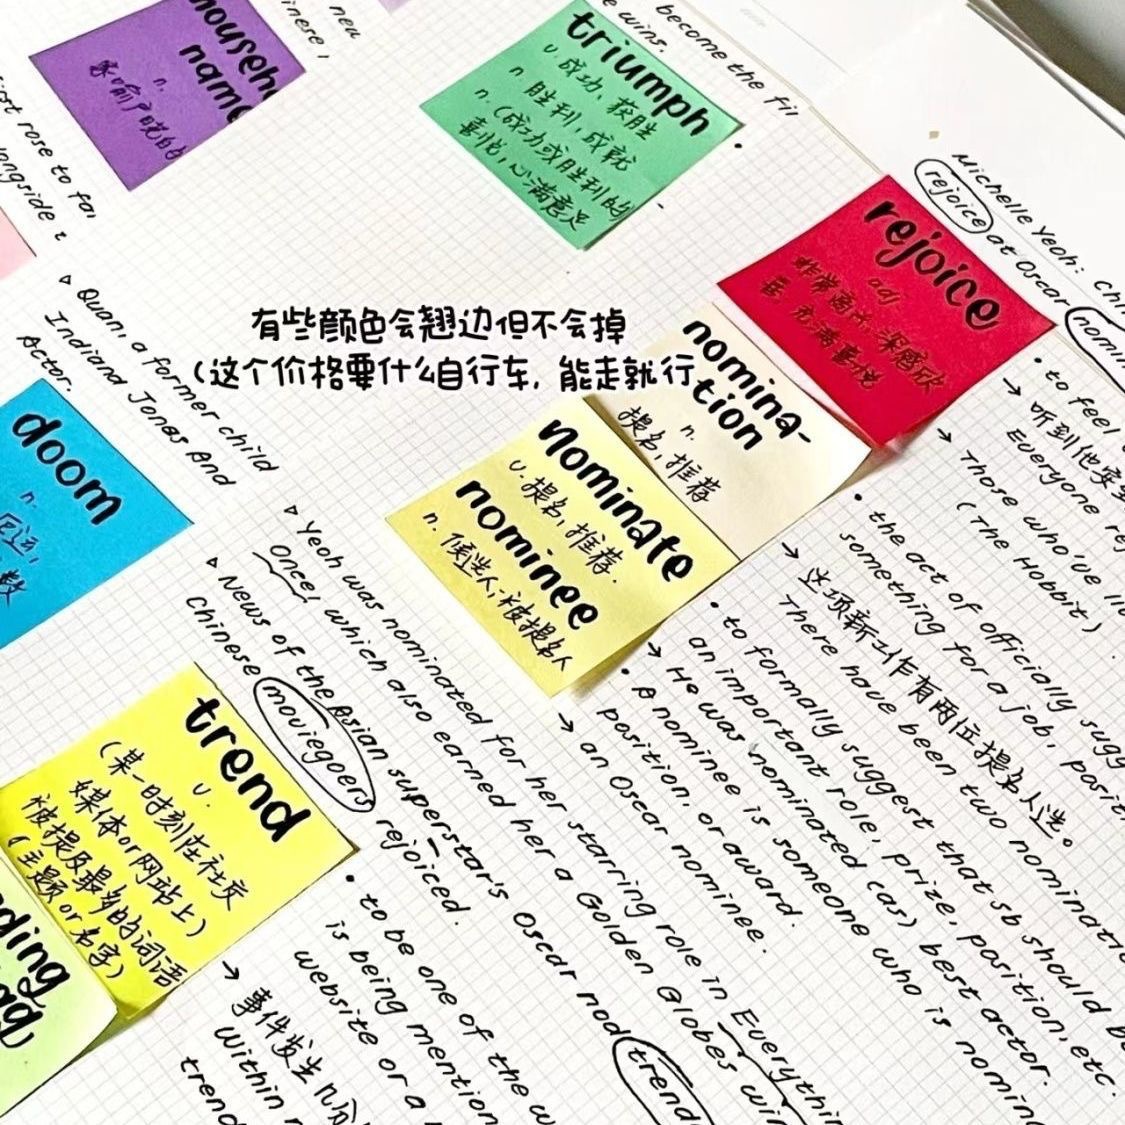 new
inese
household
name
n.
家喻户晓的
become the fil
e wins.
triumph
v. 成功, 获胜
n 胜利, 成就
n. (成功或胜利的
喜悦, 心满意足
irst rose to fa
longside
Michelle Yeoh: Chi
rejoice at Oscar nomin
rejoice
adj
非常高兴, 深感欣
喜, 充满喜悦
• to feel
→ 听到他安
Everyone rej
→ Those who've li
(The Hobbit)
有些颜色会翘边但不会掉
(这个价格要什么自行车, 能走就行
nomina-
tion
n.
提名, 推荐
• the act of officially sugg
something for a job, positi
→ 这项新工作有两位提名人选。
There have been two nominatio
Nominate
v. 提名, 推荐.
nominee
n. 候选人; 被提名人
• to formally suggest that sb should be
an important role, prize, position, etc.
→ He was nominated (as) best actor.
• A nominee is someone who is nomin
position, or award.
→ an Oscar nominee.
▷ Quan, a former child
Indiana Jones And
Actor.
doom
n.
厄运,
数
▷ Yeoh was nominated for her starring role in Everythin
Once, which also earned her a Golden Globes win
▷ News of the Asian superstar's Oscar nod trend
Chinese moviegoers rejoiced.
trend
v.
(某一时刻在社交
媒体or网站上)
被提及最多的词语
(主题or名字)
• to be one of the w
is being mention
website or a
→ 事件发生几分
Within
trend
ding
ag